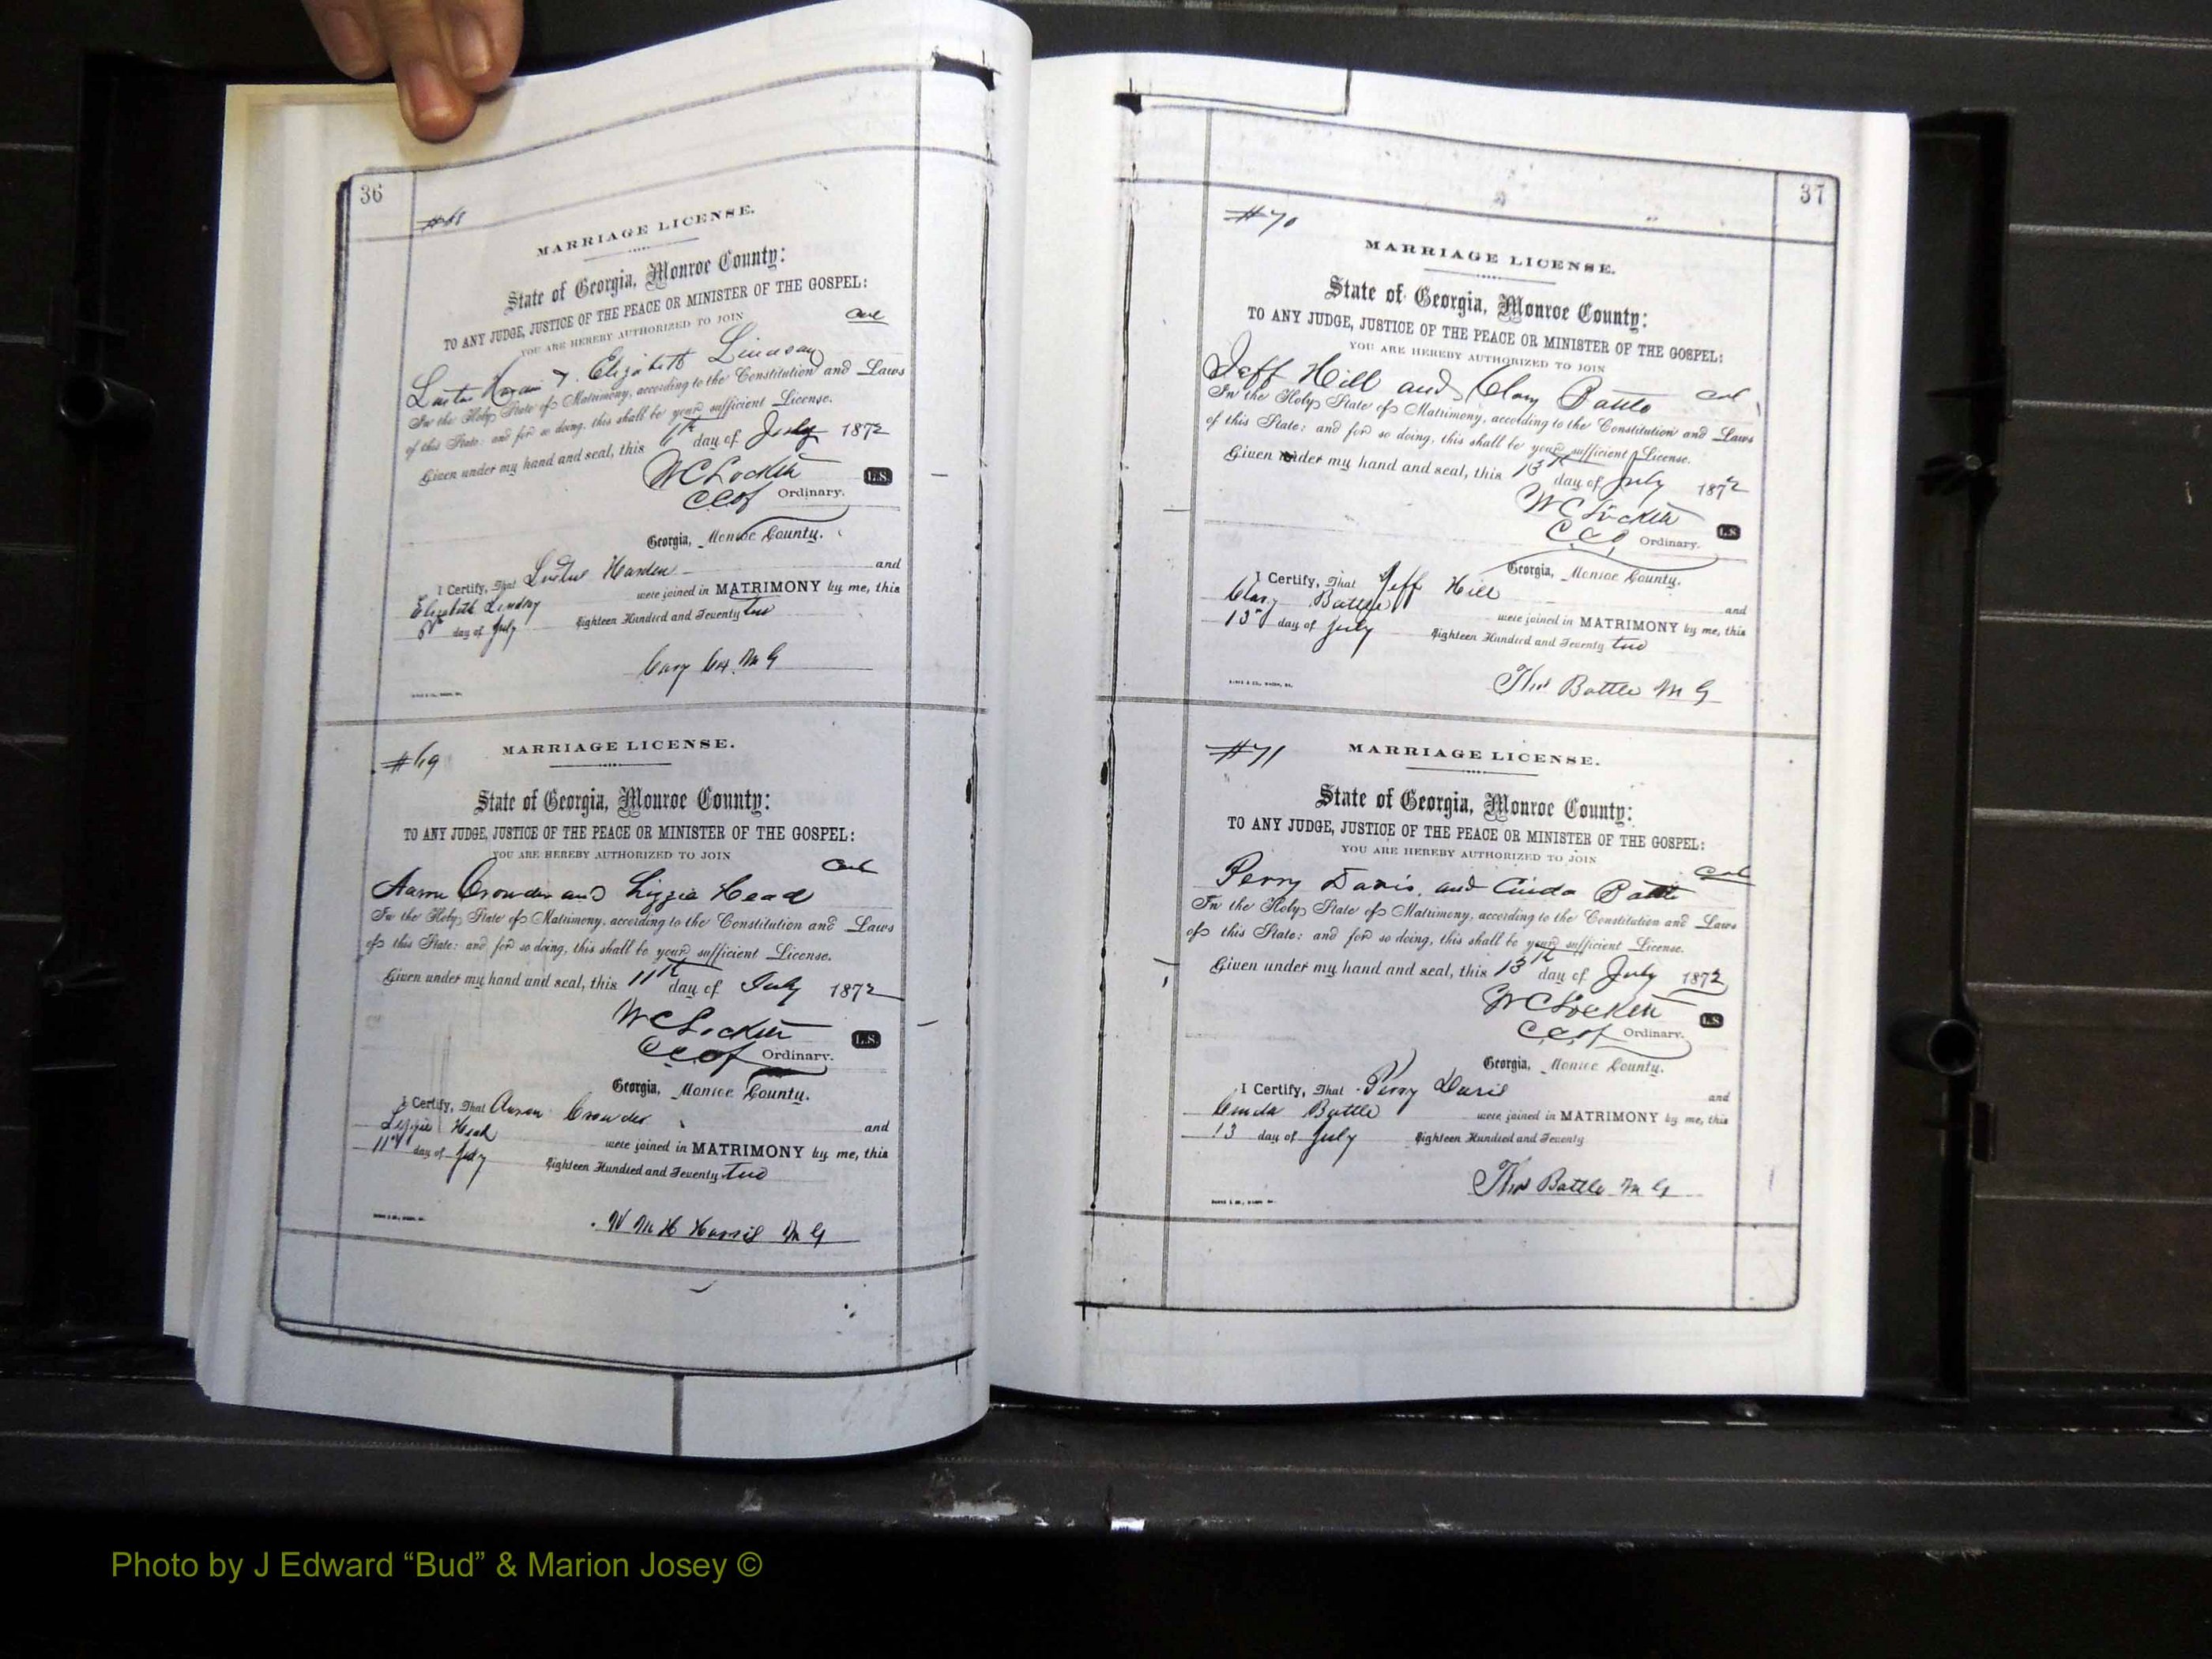 36
#68
MARRIAGE LICENSE.
State of Georgia, Monroe County:
TO ANY JUDGE, JUSTICE OF THE PEACE OR MINISTER OF THE GOSPEL:
YOU ARE HEREBY AUTHORIZED TO JOIN
Col
Elizabeth Lindsay
In the Holy State of Matrimony, according to the Constitution and Laws
of this State: and for so doing, this shall be your sufficient License.
Given under my hand and seal, this 6th day of July 1872
W C Lockett L.S.
Ordinary.
Georgia, Monroe County.
I Certify, That Harden and
Elizabeth Lindsay were joined in MATRIMONY by me, this
6th day of July Eighteen Hundred and Seventy two
Cary Cox. M G
#69
MARRIAGE LICENSE.
State of Georgia, Monroe County:
TO ANY JUDGE, JUSTICE OF THE PEACE OR MINISTER OF THE GOSPEL:
YOU ARE HEREBY AUTHORIZED TO JOIN
Col
Aaron Crowder and Lizzie Head
In the Holy State of Matrimony, according to the Constitution and Laws
of this State: and for so doing, this shall be your sufficient License.
Given under my hand and seal, this 11th day of July 1872
W C Lockett L.S.
Ordinary.
Georgia, Monroe County.
I Certify, That Aaron Crowder and
Lizzie Head were joined in MATRIMONY by me, this
11th day of July Eighteen Hundred and Seventy two
W M H Harris M G
37
#70
MARRIAGE LICENSE.
State of Georgia, Monroe County:
TO ANY JUDGE, JUSTICE OF THE PEACE OR MINISTER OF THE GOSPEL:
YOU ARE HEREBY AUTHORIZED TO JOIN
Jeff Hill and Clary Battle Col
In the Holy State of Matrimony, according to the Constitution and Laws
of this State: and for so doing, this shall be your sufficient License.
Given under my hand and seal, this 13th day of July 1872
W C Lockett L.S.
Ordinary.
Georgia, Monroe County.
I Certify, That Jeff Hill and
Clary Battle were joined in MATRIMONY by me, this
13th day of July Eighteen Hundred and Seventy two
Thos Battle M G
#71
MARRIAGE LICENSE.
State of Georgia, Monroe County:
TO ANY JUDGE, JUSTICE OF THE PEACE OR MINISTER OF THE GOSPEL:
YOU ARE HEREBY AUTHORIZED TO JOIN
Col
Perry Davis and Cinda Battle
In the Holy State of Matrimony, according to the Constitution and Laws
of this State: and for so doing, this shall be your sufficient License.
Given under my hand and seal, this 13th day of July 1872
W C Lockett L.S.
Ordinary.
Georgia, Monroe County.
I Certify, That Perry Davis and
Cinda Battle were joined in MATRIMONY by me, this
13 day of July Eighteen Hundred and Seventy
Thos Battle M G
Photo by J Edward “Bud” & Marion Josey ©